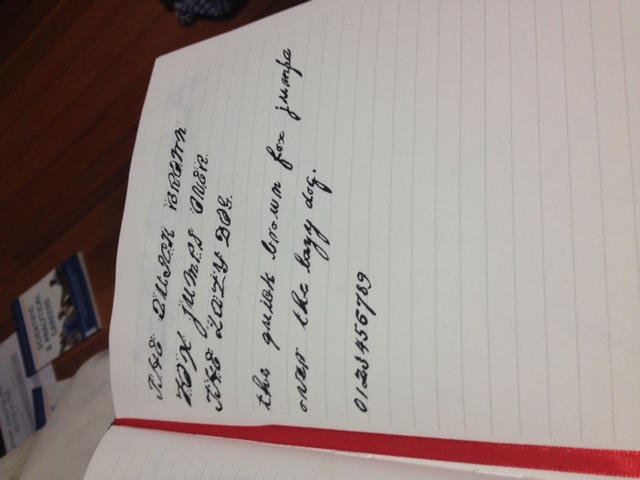 THE QUICK BROWN
FOX JUMPS OVER
THE LAZY DOG.
the quick brown fox jumps
over the lazy dog.
0123456789
SCIENTIFIC
& ANALYTICAL
CAREERS